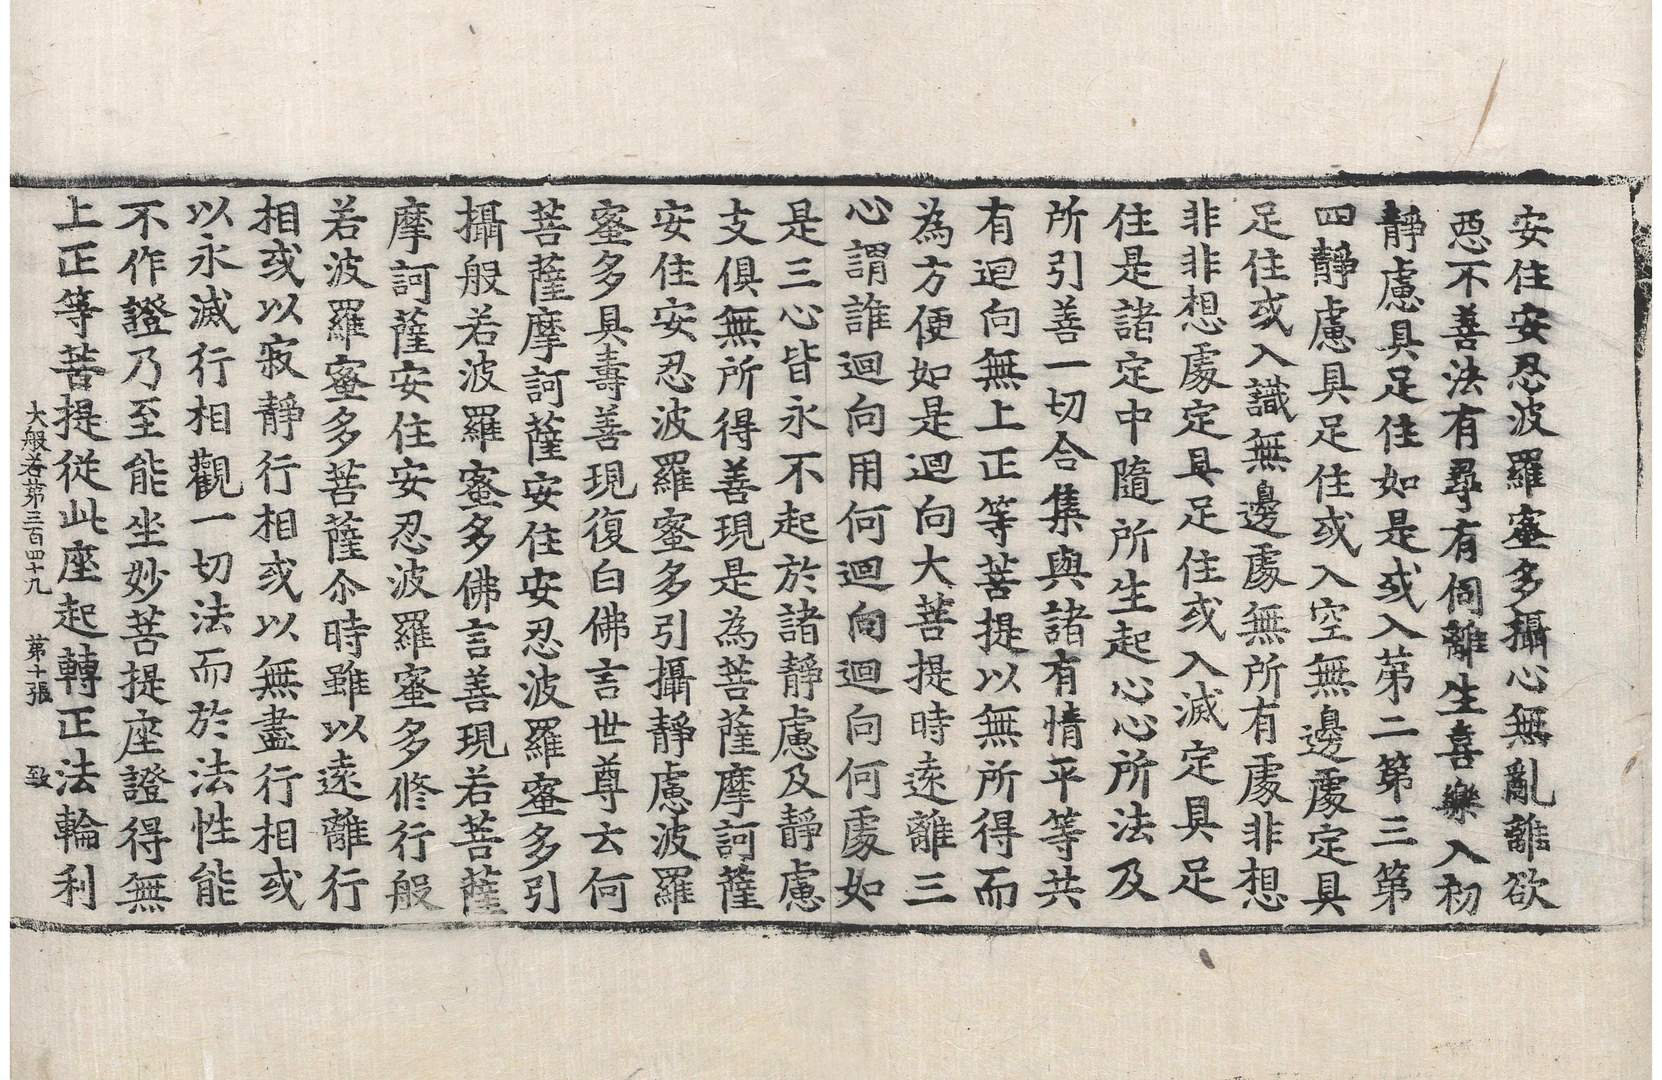 安住安忍波羅蜜多攝心無亂離欲
惡不善法有尋有伺離生喜樂入初
靜慮具足住如是或入第二第三第
四靜慮具足住或入空無邊處定具
足住或入識無邊處無所有處非想
非非想處定具足住或入滅定具足
住是諸定中隨所生起心心所法及
所引善一切合集與諸有情平等共
有迴向無上正等菩提以無所得而
為方便如是迴向大菩提時遠離三
心謂誰迴向用何迴向迴向何處如
是三心皆永不起於諸靜慮及靜慮
支俱無所得善現是為菩薩摩訶薩
安住安忍波羅蜜多引攝靜慮波羅
蜜多具壽善現復白佛言世尊云何
菩薩摩訶薩安住安忍波羅蜜多引
攝般若波羅蜜多佛言善現若菩薩
摩訶薩安住安忍波羅蜜多修行般
若波羅蜜多菩薩尒時雖以遠離行
相或以寂靜行相或以無盡行相或
以永滅行相觀一切法而於法性能
不作證乃至能坐妙菩提座證得無
上正等菩提從此座起轉正法輪利
大般若第三百四十九 第十張 致